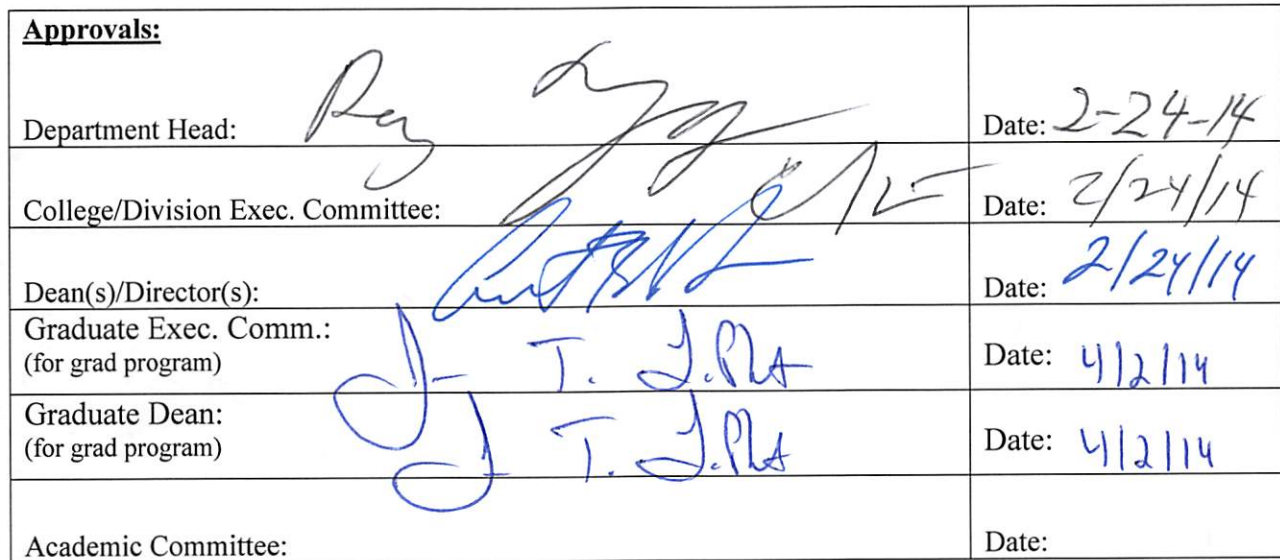 Approvals:
Department Head: Date: 2-24-14
College/Division Exec. Committee: Date: 2/24/14
Dean(s)/Director(s): Date: 2/24/14
Graduate Exec. Comm.:
(for grad program) Date: 4/2/14
Graduate Dean:
(for grad program) Date: 4/2/14
Academic Committee: Date: